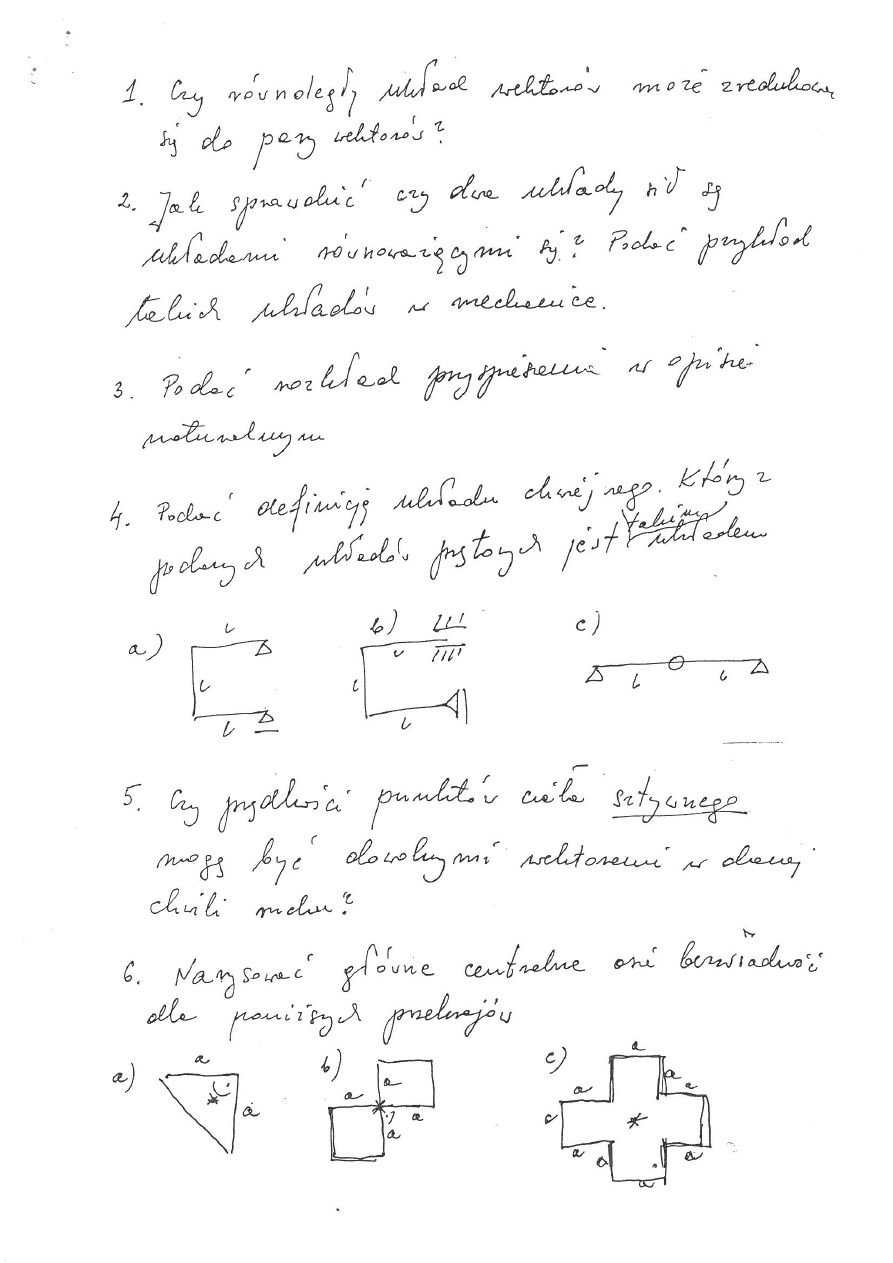 1. Czy równoległy układ wektorów może zredukować
się do pary wektorów?
2. Jak sprawdzić czy dwa układy sił są
układami równoważącymi się? Podać przykład
takich układów w mechanice.
3. Podać rozkład przyspieszenia w opisie
naturalnym
4. Podać definicję układu chwiejnego. Który z
podanych układów prętowych jest takim układem
a) l l l
b) l l l
c) l l
5. Czy prędkości punktów ciała sztywnego
mogą być dowolnymi wektorami w danej
chwili ruchu?
6. Narysować główne centralne osie bezwładności
dla poniższych przekrojów
a) a a
b) a a a a
c) a a a a a a a a a